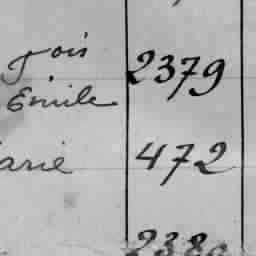 çois 2379
Emile
arie 472